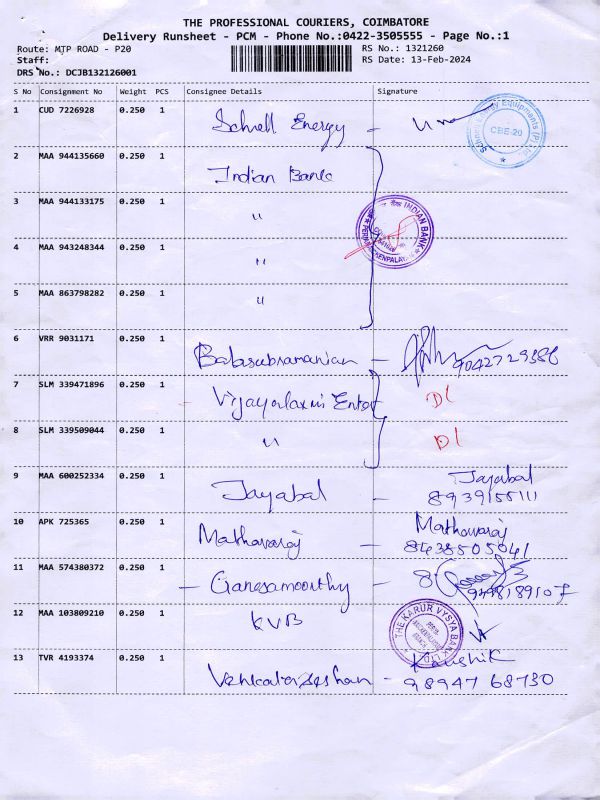 THE PROFESSIONAL COURIERS, COIMBATORE
Delivery Runsheet - PCM - Phone No.:0422-3505555 - Page No.:1
Route: MTP ROAD - P20 RS No.: 1321260
Staff: RS Date: 13-Feb-2024
DRS No.: DCJB132126001
S No Consignment No Weight PCS Consignee Details Signature
1 CUD 7226928 0.250 1 Schnell Energy - CBE-20
2 MAA 944135660 0.250 1 Indian Bank
3 MAA 944133175 0.250 1 " INDIAN BANK
4 MAA 943248344 0.250 1 "
5 MAA 863798282 0.250 1 "
6 VRR 9031171 0.250 1 Balasubramanian - 
7 SLM 339471896 0.250 1 Vijayalaxmi Enter DL
8 SLM 339509044 0.250 1 " DL
9 MAA 600252334 0.250 1 Jayabal - Jayabal
8939155111
10 APK 725365 0.250 1 Mathavaraj - Mathavaraj
8438505041
11 MAA 574380372 0.250 1 - Ganesamoorthy -
12 MAA 103809210 0.250 1 KVB THE KARUR VYSYA BANK LTD
13 TVR 4193374 0.250 1 Venkataseshan - Kaushik
98947 68730